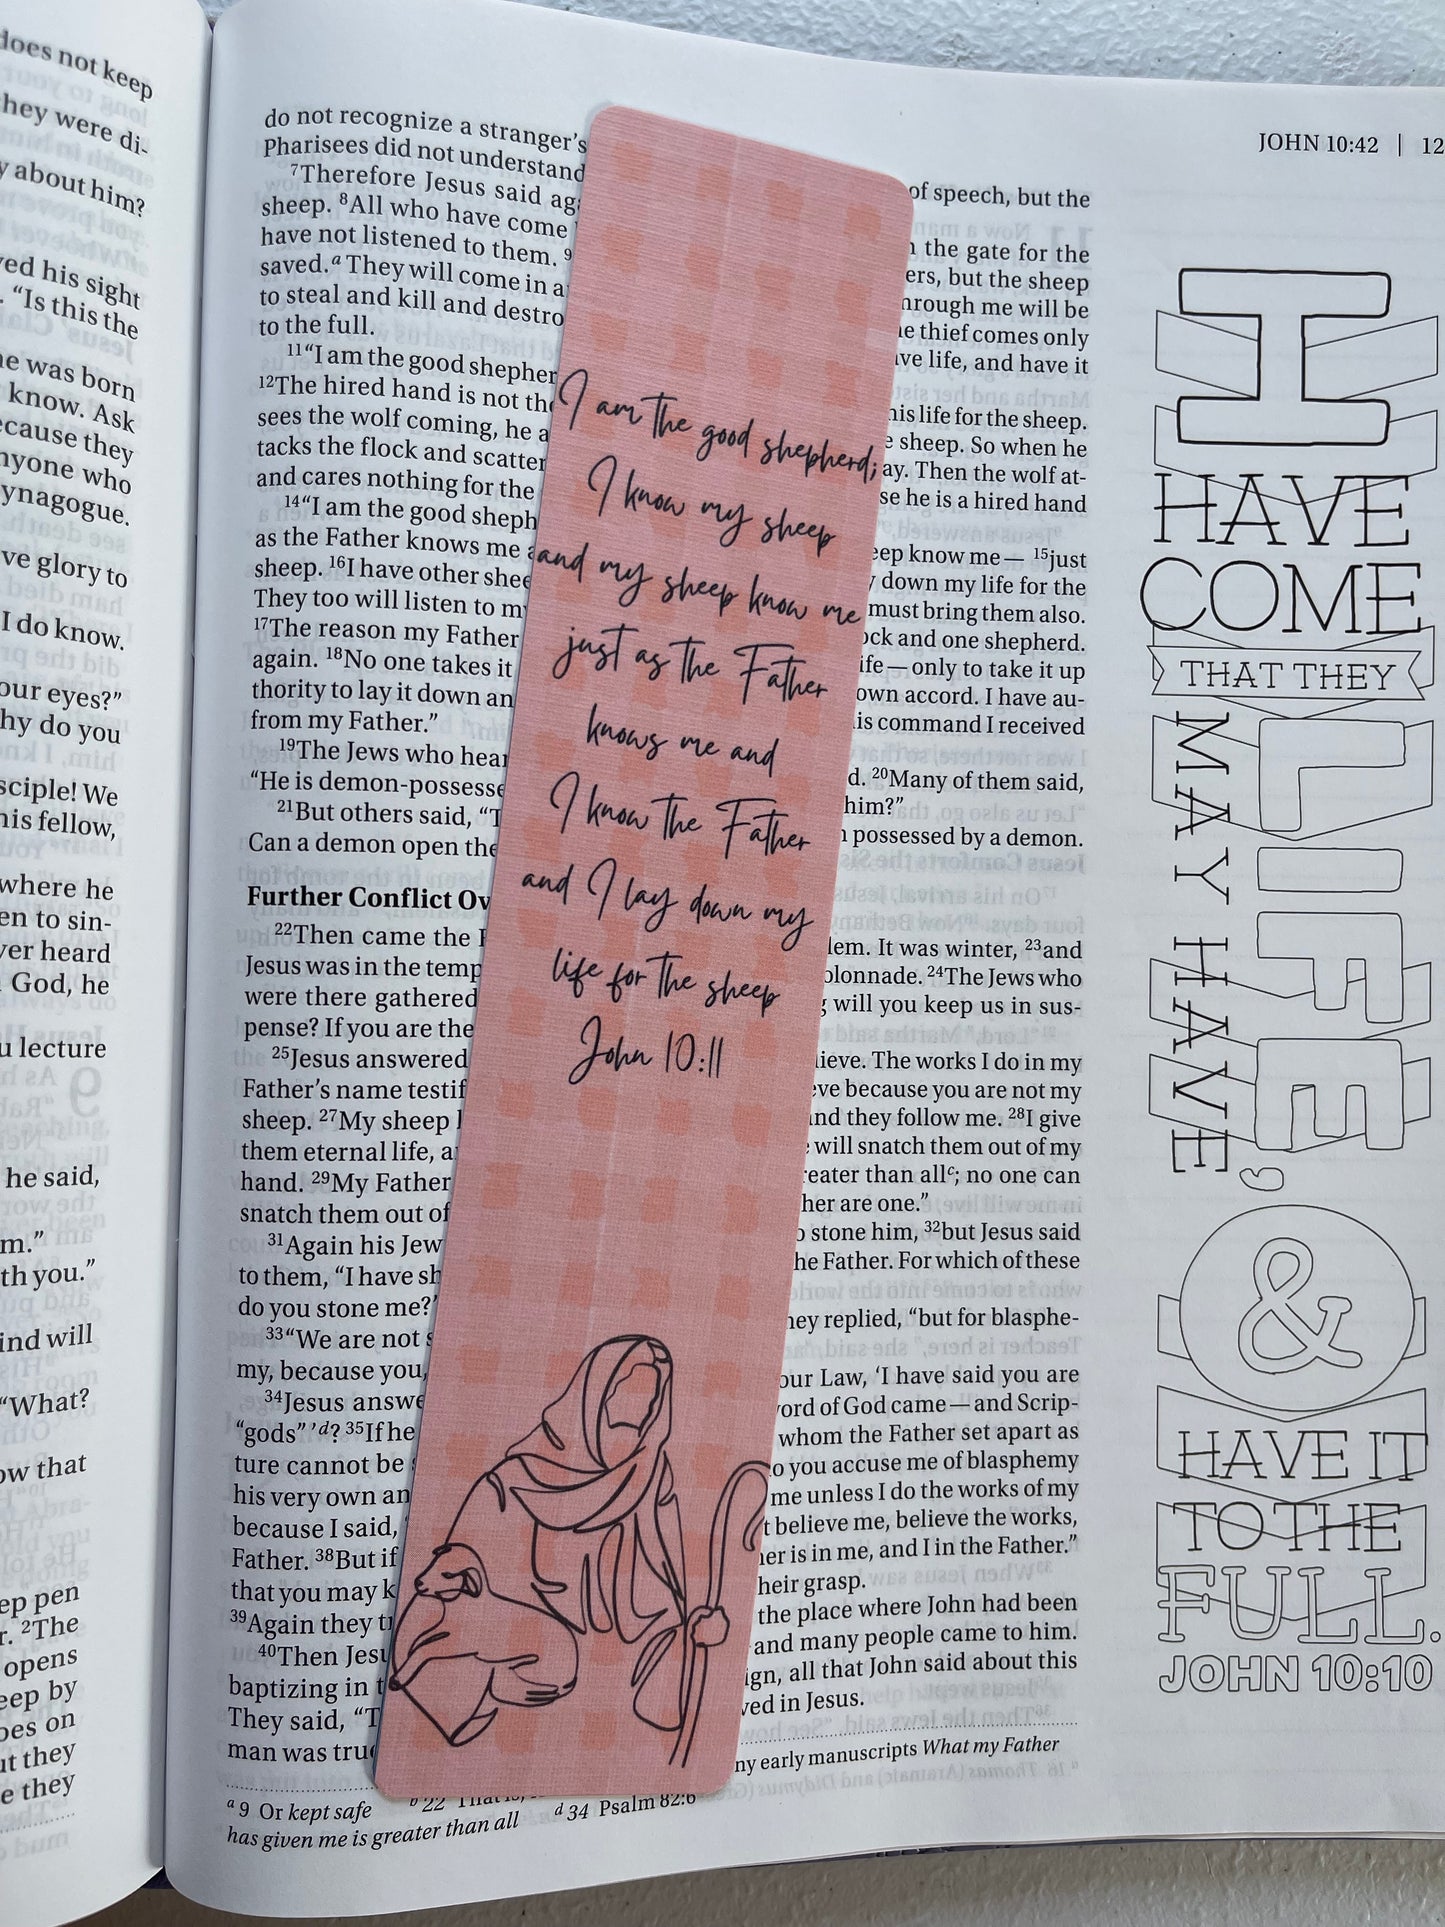 does not keep
they were di-
y about him?
ved his sight
. “Is this the
he was born
know. Ask
ecause they
nyone who
ynagogue.
ve glory to
I do know.
our eyes?”
hy do you
sciple! We
his fellow,
where he
en to sin-
ver heard
God, he
u lecture
he said,
m.”
th you.”
ind will
“What?
ow that
ep pen
r. 2The
opens
eep by
oes on
ut they
e they
do not recognize a stranger’s
of speech, but the
Pharisees did not understand
7Therefore Jesus said aga
the gate for the
sheep. 8All who have come
ers, but the sheep
have not listened to them. 9
hrough me will be
saved.a They will come in a
e thief comes only
to steal and kill and destro
ave life, and have it
to the full.
11“I am the good shepher
his life for the sheep.
12The hired hand is not the
e sheep. So when he
sees the wolf coming, he a
ay. Then the wolf at-
tacks the flock and scatter
se he is a hired hand
and cares nothing for the
14“I am the good sheph
eep know me— 15just
as the Father knows me a
y down my life for the
sheep. 16I have other shee
must bring them also.
They too will listen to my
ock and one shepherd.
17The reason my Father
ife—only to take it up
again. 18No one takes it
own accord. I have au-
thority to lay it down an
is command I received
from my Father.”
19The Jews who hear
d. 20Many of them said,
“He is demon-possesse
him?”
21But others said, “T
possessed by a demon.
Can a demon open the
Further Conflict Ov
22Then came the F
lem. It was winter, 23and
Jesus was in the temp
olonnade. 24The Jews who
were there gathered
g will you keep us in sus-
pense? If you are the
25Jesus answered
lieve. The works I do in my
Father’s name testif
eve because you are not my
sheep. 27My sheep l
nd they follow me. 28I give
them eternal life, a
will snatch them out of my
hand. 29My Father
reater than allc; no one can
snatch them out of
her are one.”
31Again his Jew
o stone him, 32but Jesus said
to them, “I have sh
he Father. For which of these
do you stone me?”
33“We are not s
hey replied, “but for blasphe-
my, because you,
34Jesus answe
our Law, ‘I have said you are
“gods” ’d? 35If he
ord of God came—and Scrip-
ture cannot be
whom the Father set apart as
his very own an
o you accuse me of blasphemy
because I said,
me unless I do the works of my
Father. 38But if
t believe me, believe the works,
that you may k
her is in me, and I in the Father.”
39Again they tr
heir grasp.
40Then Jesu
the place where John had been
baptizing in t
and many people came to him.
They said, “T
ign, all that John said about this
man was true
ved in Jesus.
a 9 Or kept safe
b 22
ny early manuscripts What my Father
has given me is greater than all
d 34 Psalm 82:6
I am the good shepherd;
I know my sheep
and my sheep know me
just as the Father
knows me and
I know the Father
and I lay down my
life for the sheep
John 10:11
JOHN 10:42 | 12
I
HAVE
COME
THAT THEY
MAY HAVE
LIFE,
&
HAVE IT
TO THE
FULL.
JOHN 10:10